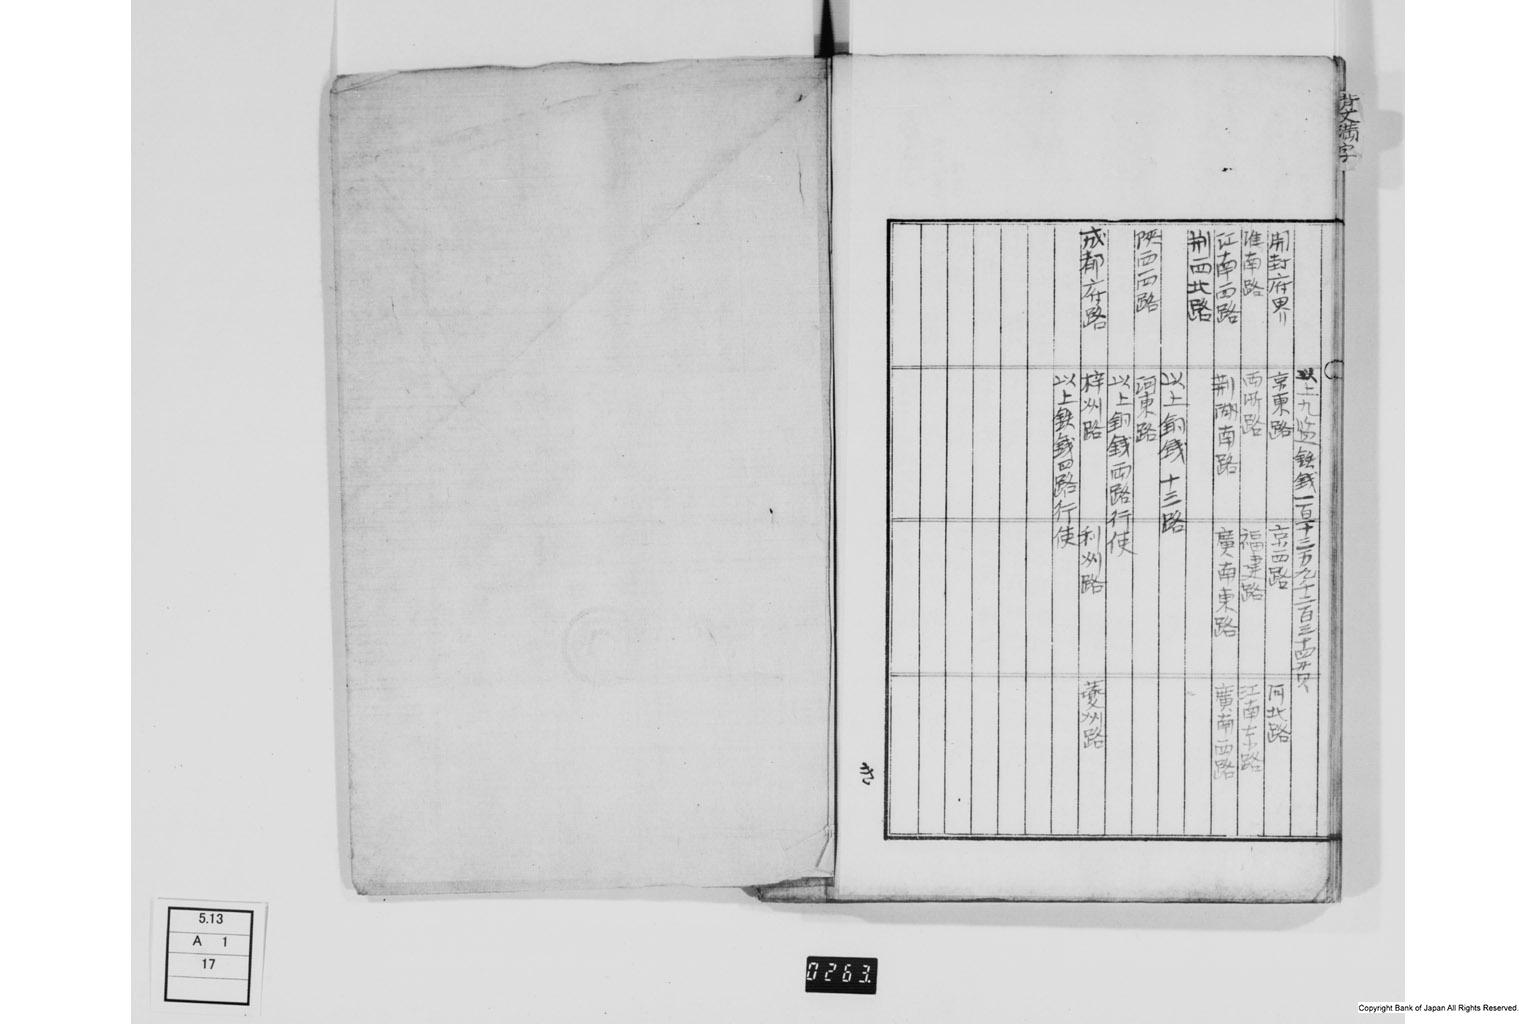 背文満字
以上九監鉄銭一百十三万九千二百三十四貫
開封府界 京東路 京西路 河北路
淮南路 両浙路 福建路 江南东路
江南西路 荆湖南路 廣南東路 廣南西路
荆西北路
以上銅銭十三路
陝西西路 河東路
以上銅銭西路行使
成都府路 梓州路 利州路 夔州路
以上鉄銭四路行使
き
5.13
A 1
17
0263.
Copyright Bank of Japan All Rights Reserved.